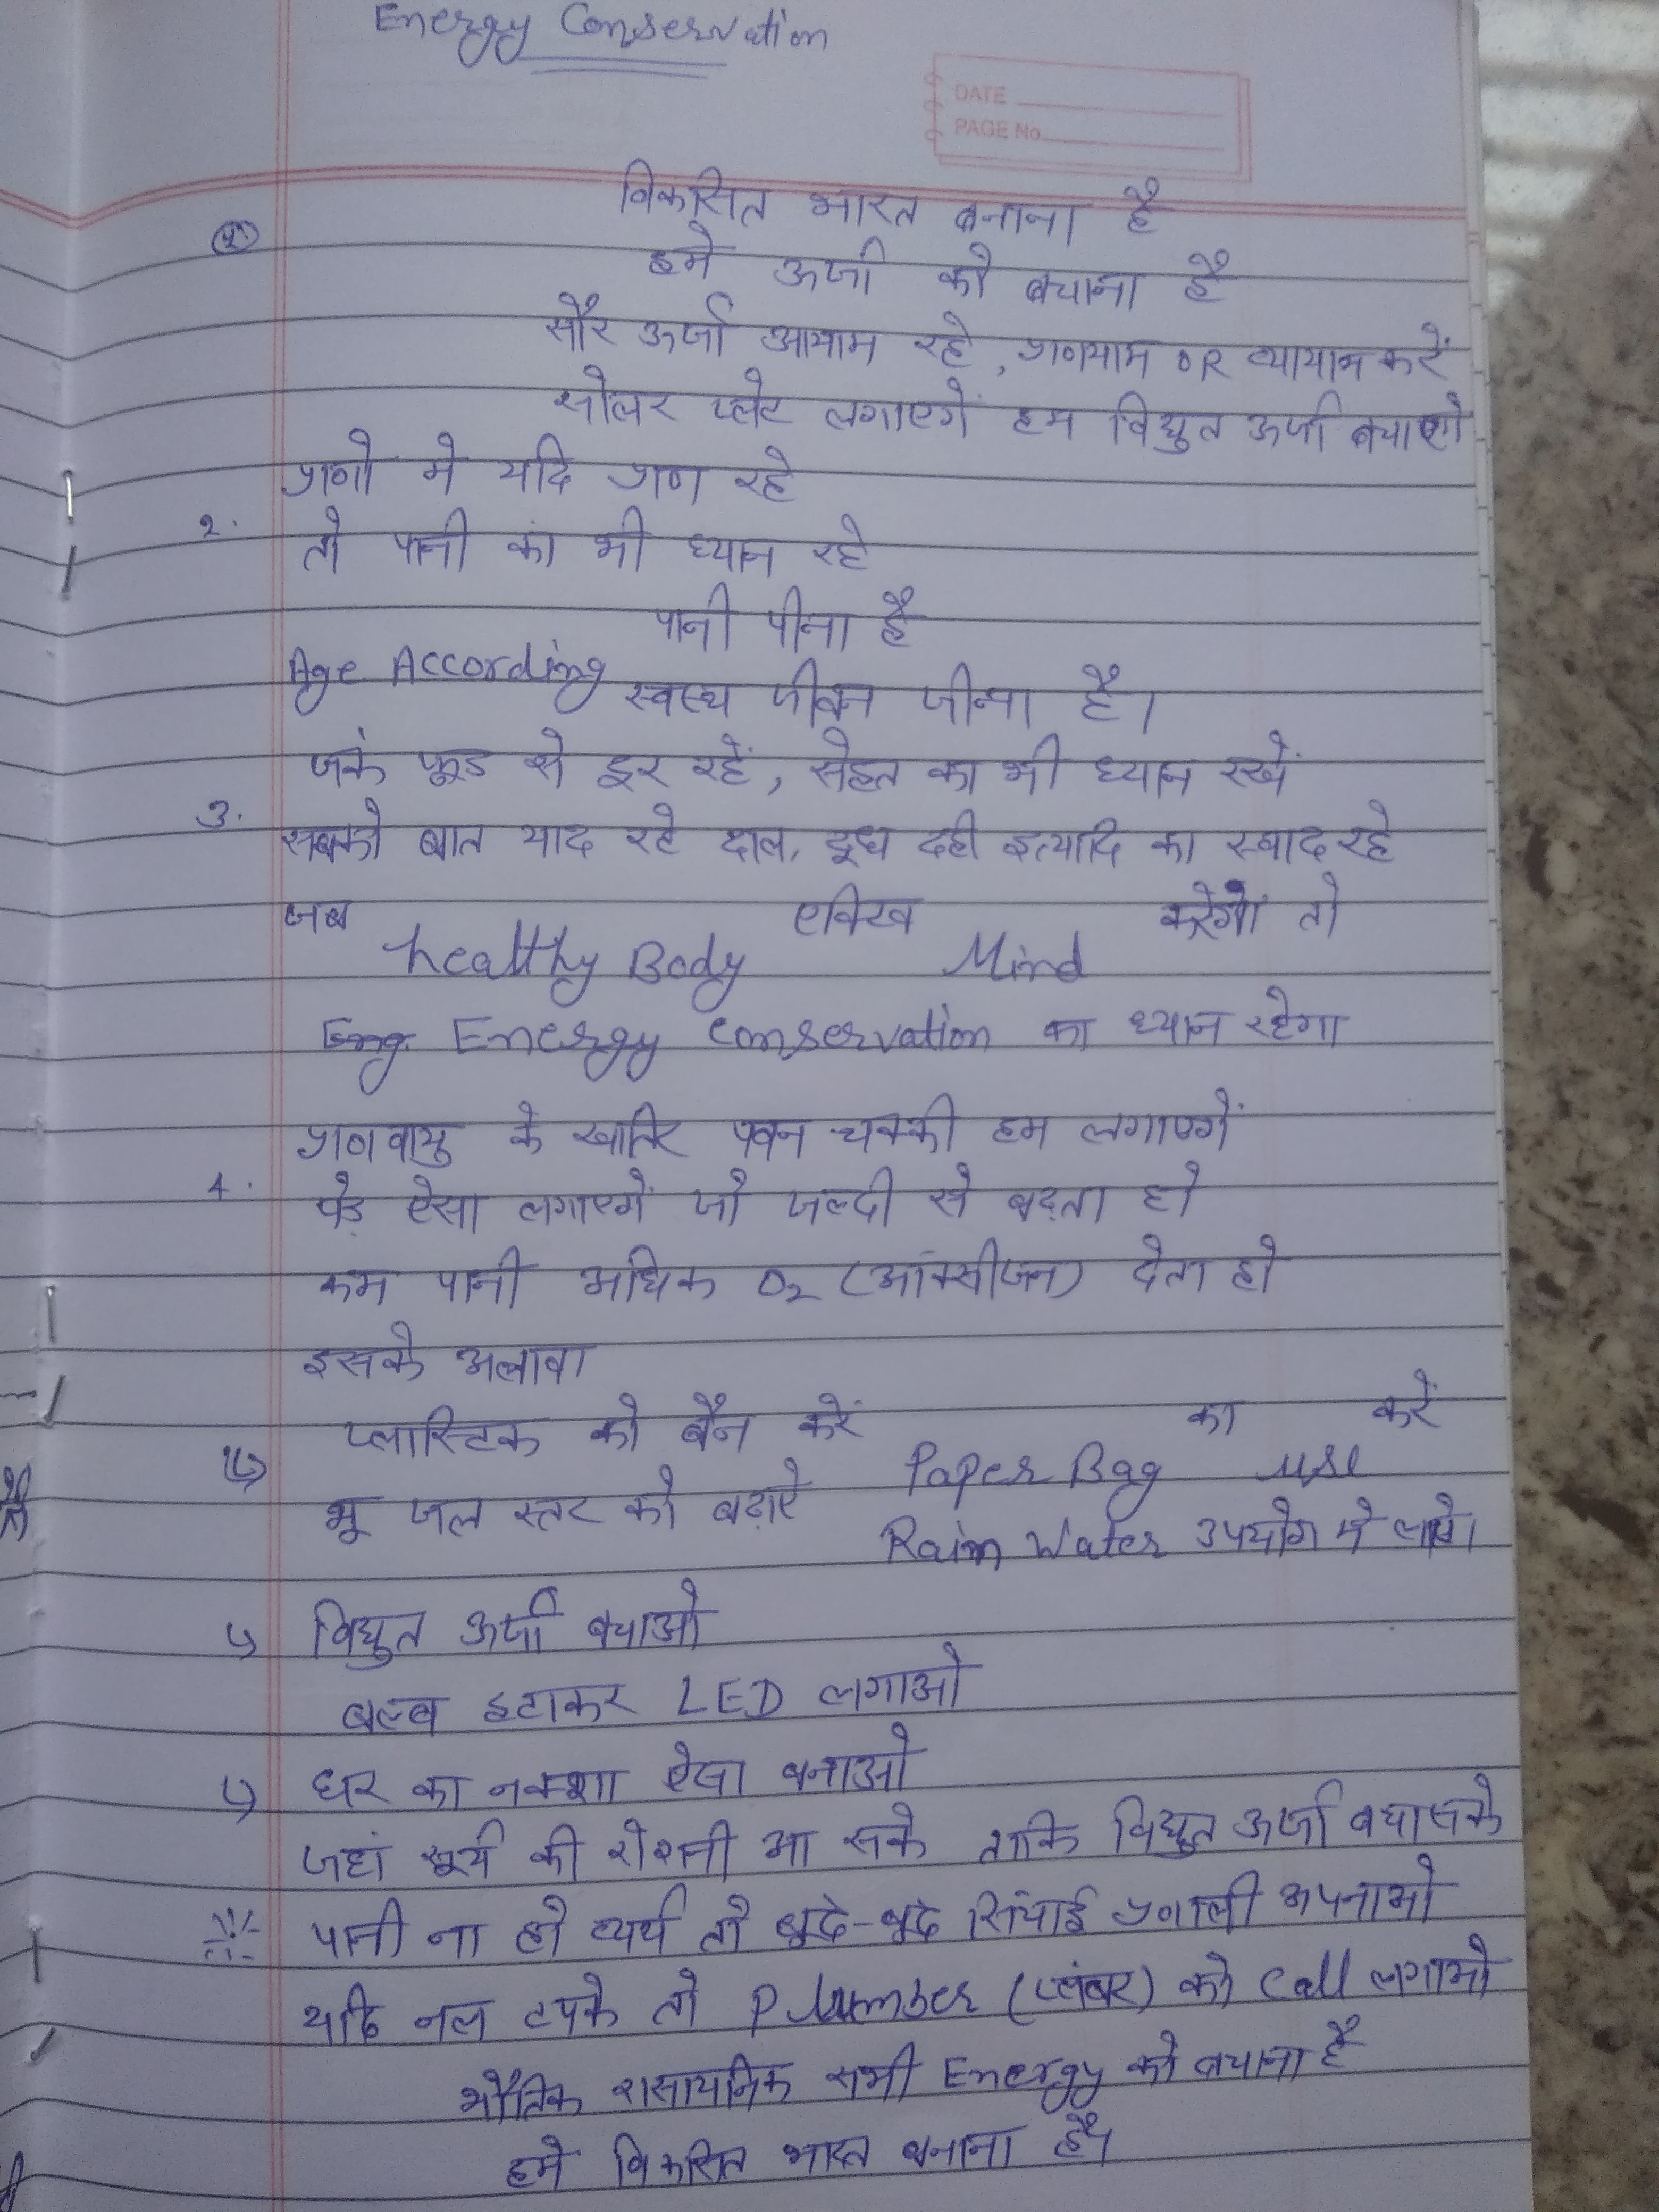 Energy Conservation
DATE
PAGE No
विकसित भारत बनाना है
हमे ऊर्जा को बचाना है
सौर ऊर्जा आयाम रहे, प्राणयाम OR व्यायाम करें
सोलर प्लेट लगाएगें हम विद्युत ऊर्जा बचाएगे
प्राणो मे यदि प्राण रहे
2. तो पानी का भी ध्यान रहे
पानी पीना है
Age According
स्वस्थ जीवन जीना है।
जंक फूड से दूर रहें, सेहत का भी ध्यान रखें
3. सबको बात याद रहे दाल, दूध दही इत्यादि का स्वाद रहे
जब healthy Body एक्टिव Mind करेगें तो
Energy Conservation का ध्यान रहेगा
प्राणवायु के खातिर पवन चक्की हम लगाएगें
4. पेड़ ऐसा लगाएगें जो जल्दी से बढ़ता हो
कम पानी अधिक O2 (ऑक्सीजन) देता हो
इसके अलावा
प्लास्टिक को बैन करें Paper Bag का use करें
भू जल स्तर को बढ़ाऐ Rain Water उपयोग मे लाऐ।
विद्युत ऊर्जा बचाओ
बल्ब हटाकर LED लगाओ
घर का नक्शा ऐसा बनाओ
जहां सूर्य की रोशनी आ सके ताकि विद्युत ऊर्जा बचा सके
पानी ना हो व्यर्थ तो बूदे-बूदे सिंचाई प्रणाली अपनाओ
यदि नल टपके तो Plumber (प्लंबर) को Call लगाओ
भौतिक रासायनिक सभी Energy को बचाना है
हमे विकसित भारत बनाना है।